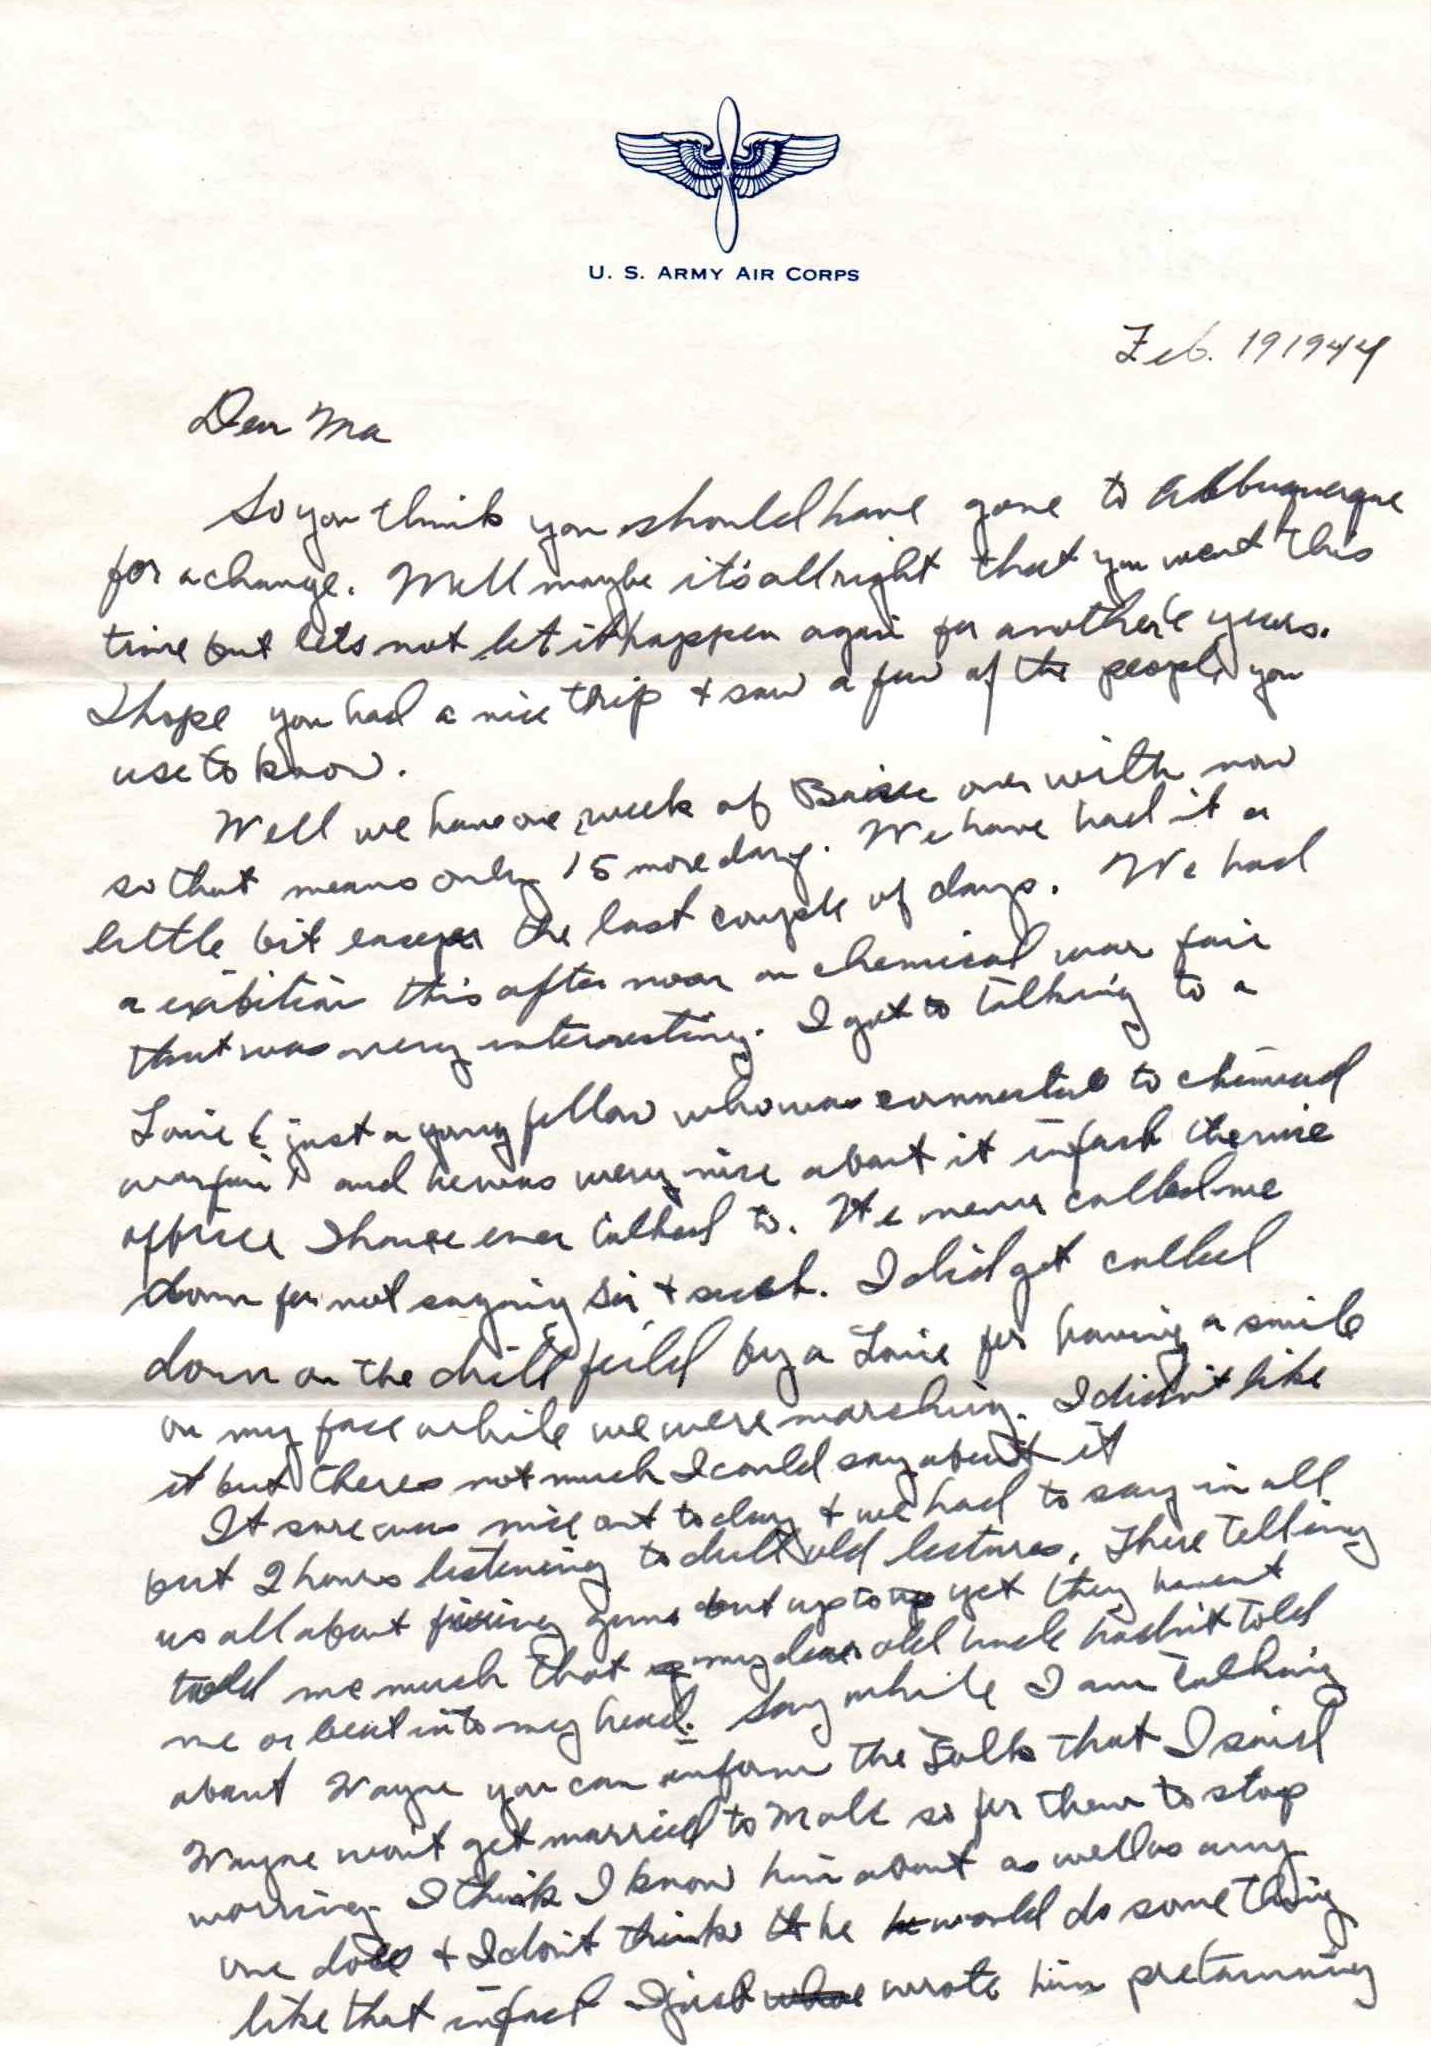 U. S. ARMY AIR CORPS
Feb. 19 1944
Dear Ma
So you think you should have gone to Albuquerque
for a change. Well maybe it's allright that you went this
time but lets not let it happen again for another years.
I hope you had a nice trip & saw a few of the people you
use to know.
Well we have one week of over with now
so that means only 15 more days. We have had it a
little bit easyer the last couple of days. We had
a exibition this after noon on chemical war fair
that was very interesting. I got to talking to a
Louie (just a young fellow who was connected to chemical
warfair) and he was very nice about it infact the nice
officer I have ever talked to. He never called me
down for not saying Sir & such. I did get called
down on the drill feild by a Louie for having a smile
on my face while we were marching. I didn't like
it but theres not much I could say about it
It sure was nice out today & we had to say in all
but 2 hours listening to dull old lectures. There telling
us all about guns but up to yet they havent
told me much that my dear old uncle hadn't told
me or beat into my head. Say while I am talking
about Wayne you can inform the Folks that I said
Wayne wont get married to so for them to stop
worring I think I know him about as well as any
one does & I don't think he would do some thing
like that infact I just wrote him